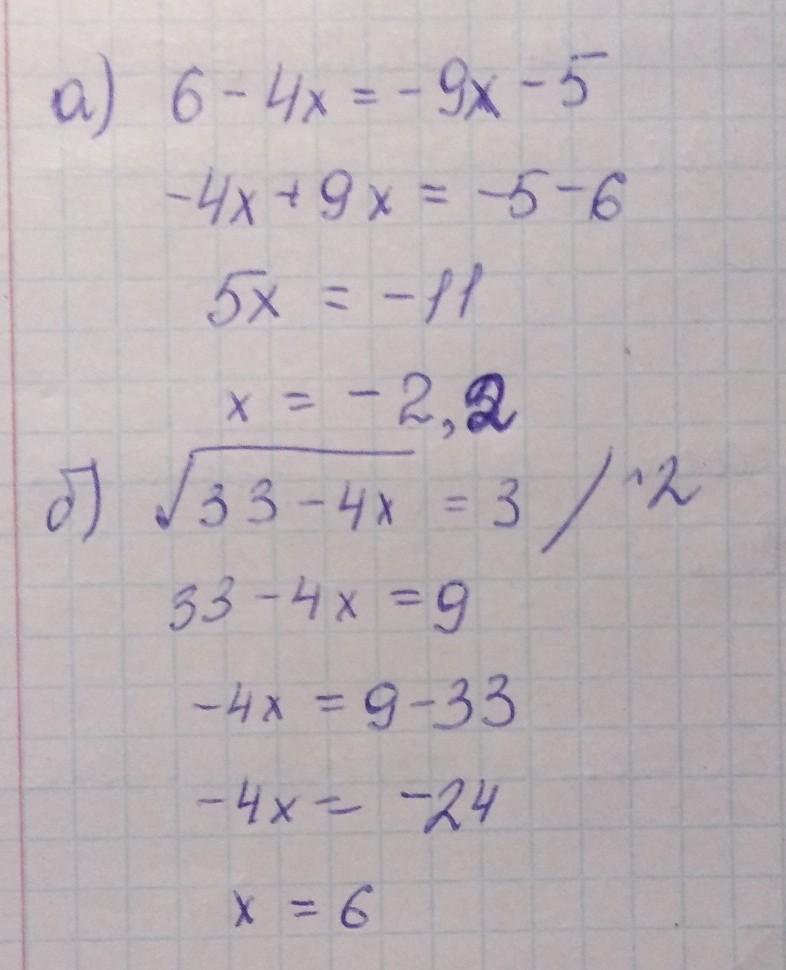 а) 6 - 4x = -9x - 5
-4x + 9x = -5 - 6
5x = -11
x = -2,2
б) √33 - 4x = 3 / ^2
33 - 4x = 9
-4x = 9 - 33
-4x = -24
x = 6